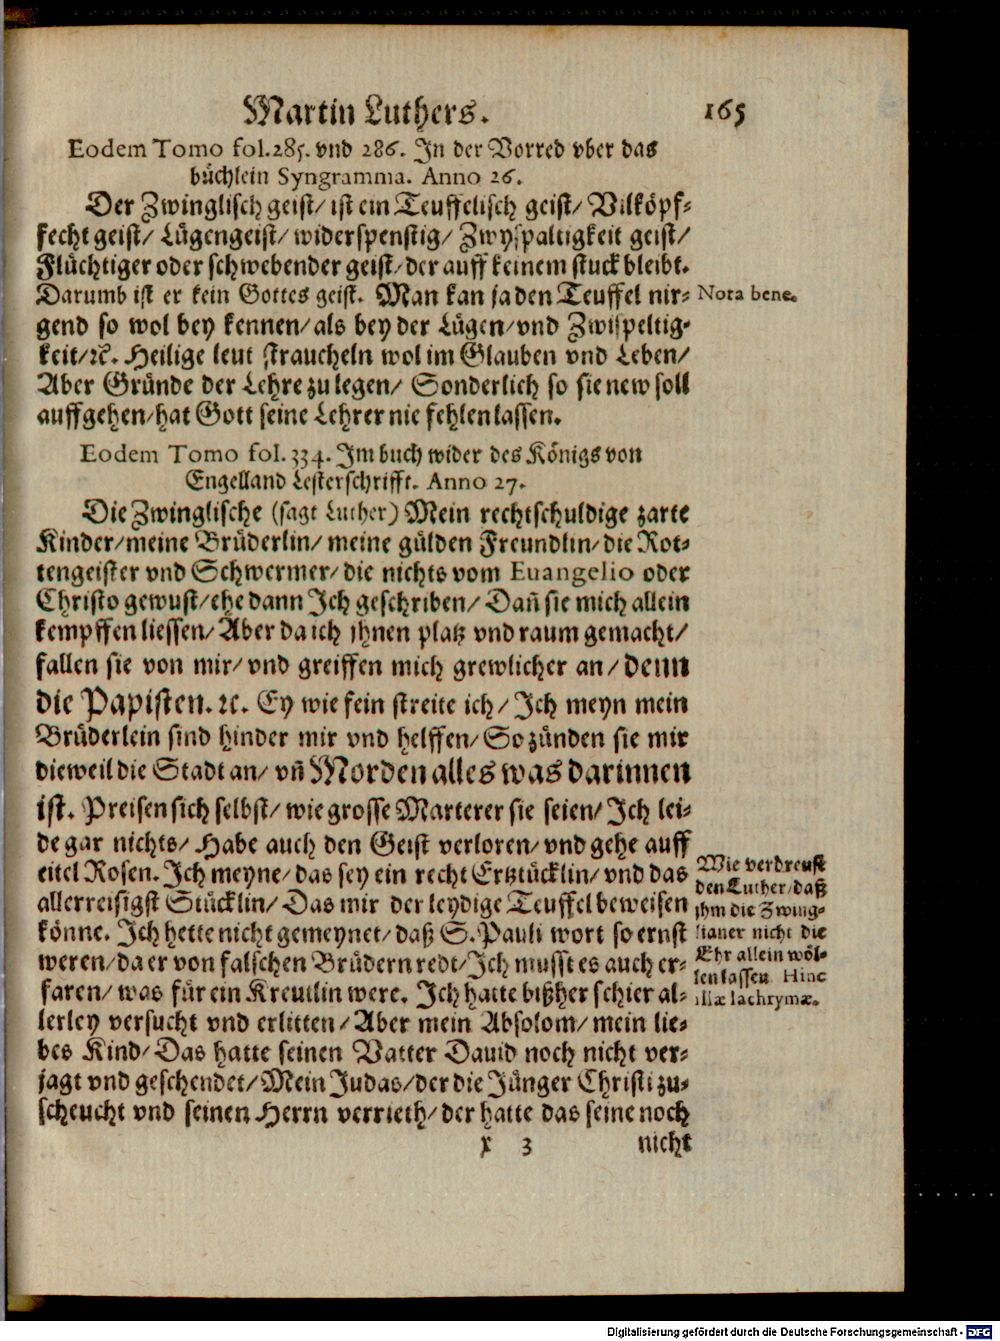 Martin Luthers. 165
Eodem Tomo fol. 285. vnd 286. In der Vorred vber das
büchlein Syngramma. Anno 26.
Der Zwinglisch geist/ ist ein Teuffelisch geist/ Vilköpf-
fecht geist/ Lügengeist/ widerspenstig/ Zwyspaltigkeit geist/
Flüchtiger oder schwebender geist/ der auff keinem stuck bleibt.
Darumb ist er kein Gottes geist. Man kan ja den Teuffel nir-
Nota bene.
gend so wol bey kennen/ als bey der Lügen/ vnd Zwispeltig-
keit/ ꝛc. Heilige leut straucheln wol im Glauben vnd Leben/
Aber Gründe der Lehre zu legen/ Sonderlich so sie new soll
auffgehen/ hat Gott seine Lehrer nie fehlen lassen.
Eodem Tomo fol. 334. Im buch wider des Königs von
Engelland Lesterschrifft. Anno 27.
Die Zwinglische (sagt Luther) Mein rechtschuldige zarte
Kinder/ meine Brüderlin/ meine gülden Freundlin/ die Rot-
tengeister vnd Schwermer/ die nichts vom Euangelio oder
Christo gewust/ ehe dann Ich geschriben/ Dañ sie mich allein
kempffen liessen/ Aber da ich ihnen platz vnd raum gemacht/
fallen sie von mir/ vnd greiffen mich grewlicher an/ denn
die Papisten. ꝛc. Ey wie fein streite ich/ Ich meyn mein
Brüderlein sind hinder mir vnd helffen/ So zünden sie mir
dieweil die Stadt an/ vñ Morden alles was darinnen
ist. Preisen sich selbst/ wie grosse Marterer sie seien/ Ich lei-
de gar nichts/ Habe auch den Geist verloren/ vnd gehe auff
eitel Rosen. Ich meyne/ das sey ein recht Ertztücklin/ vnd das
allerreisigst Stücklin/ Das mir der leydige Teuffel beweisen
könne. Ich hette nicht gemeynet/ daß S. Pauli wort so ernst
weren/ da er von falschen Brüdern redt/ Ich musst es auch er-
faren/ was für ein Kreutlin were. Ich hatte bißher schier al-
lerley versucht vnd erlitten/ Aber mein Absolom/ mein lie-
bes Kind/ Das hatte seinen Vatter Dauid noch nicht ver-
jagt vnd geschendet/ Mein Judas/ der die Jünger Christi zu-
scheucht vnd seinen Herrn verrieth/ der hatte das seine noch
Wie verdreust
den Luther/ daß
ihm die Zwing-
lianer nicht die
Ehr allein wöl-
len lassen. Hinc
illæ lachrymæ.
x 3 nicht
Digitalisierung gefördert durch die Deutsche Forschungsgemeinschaft - DFG